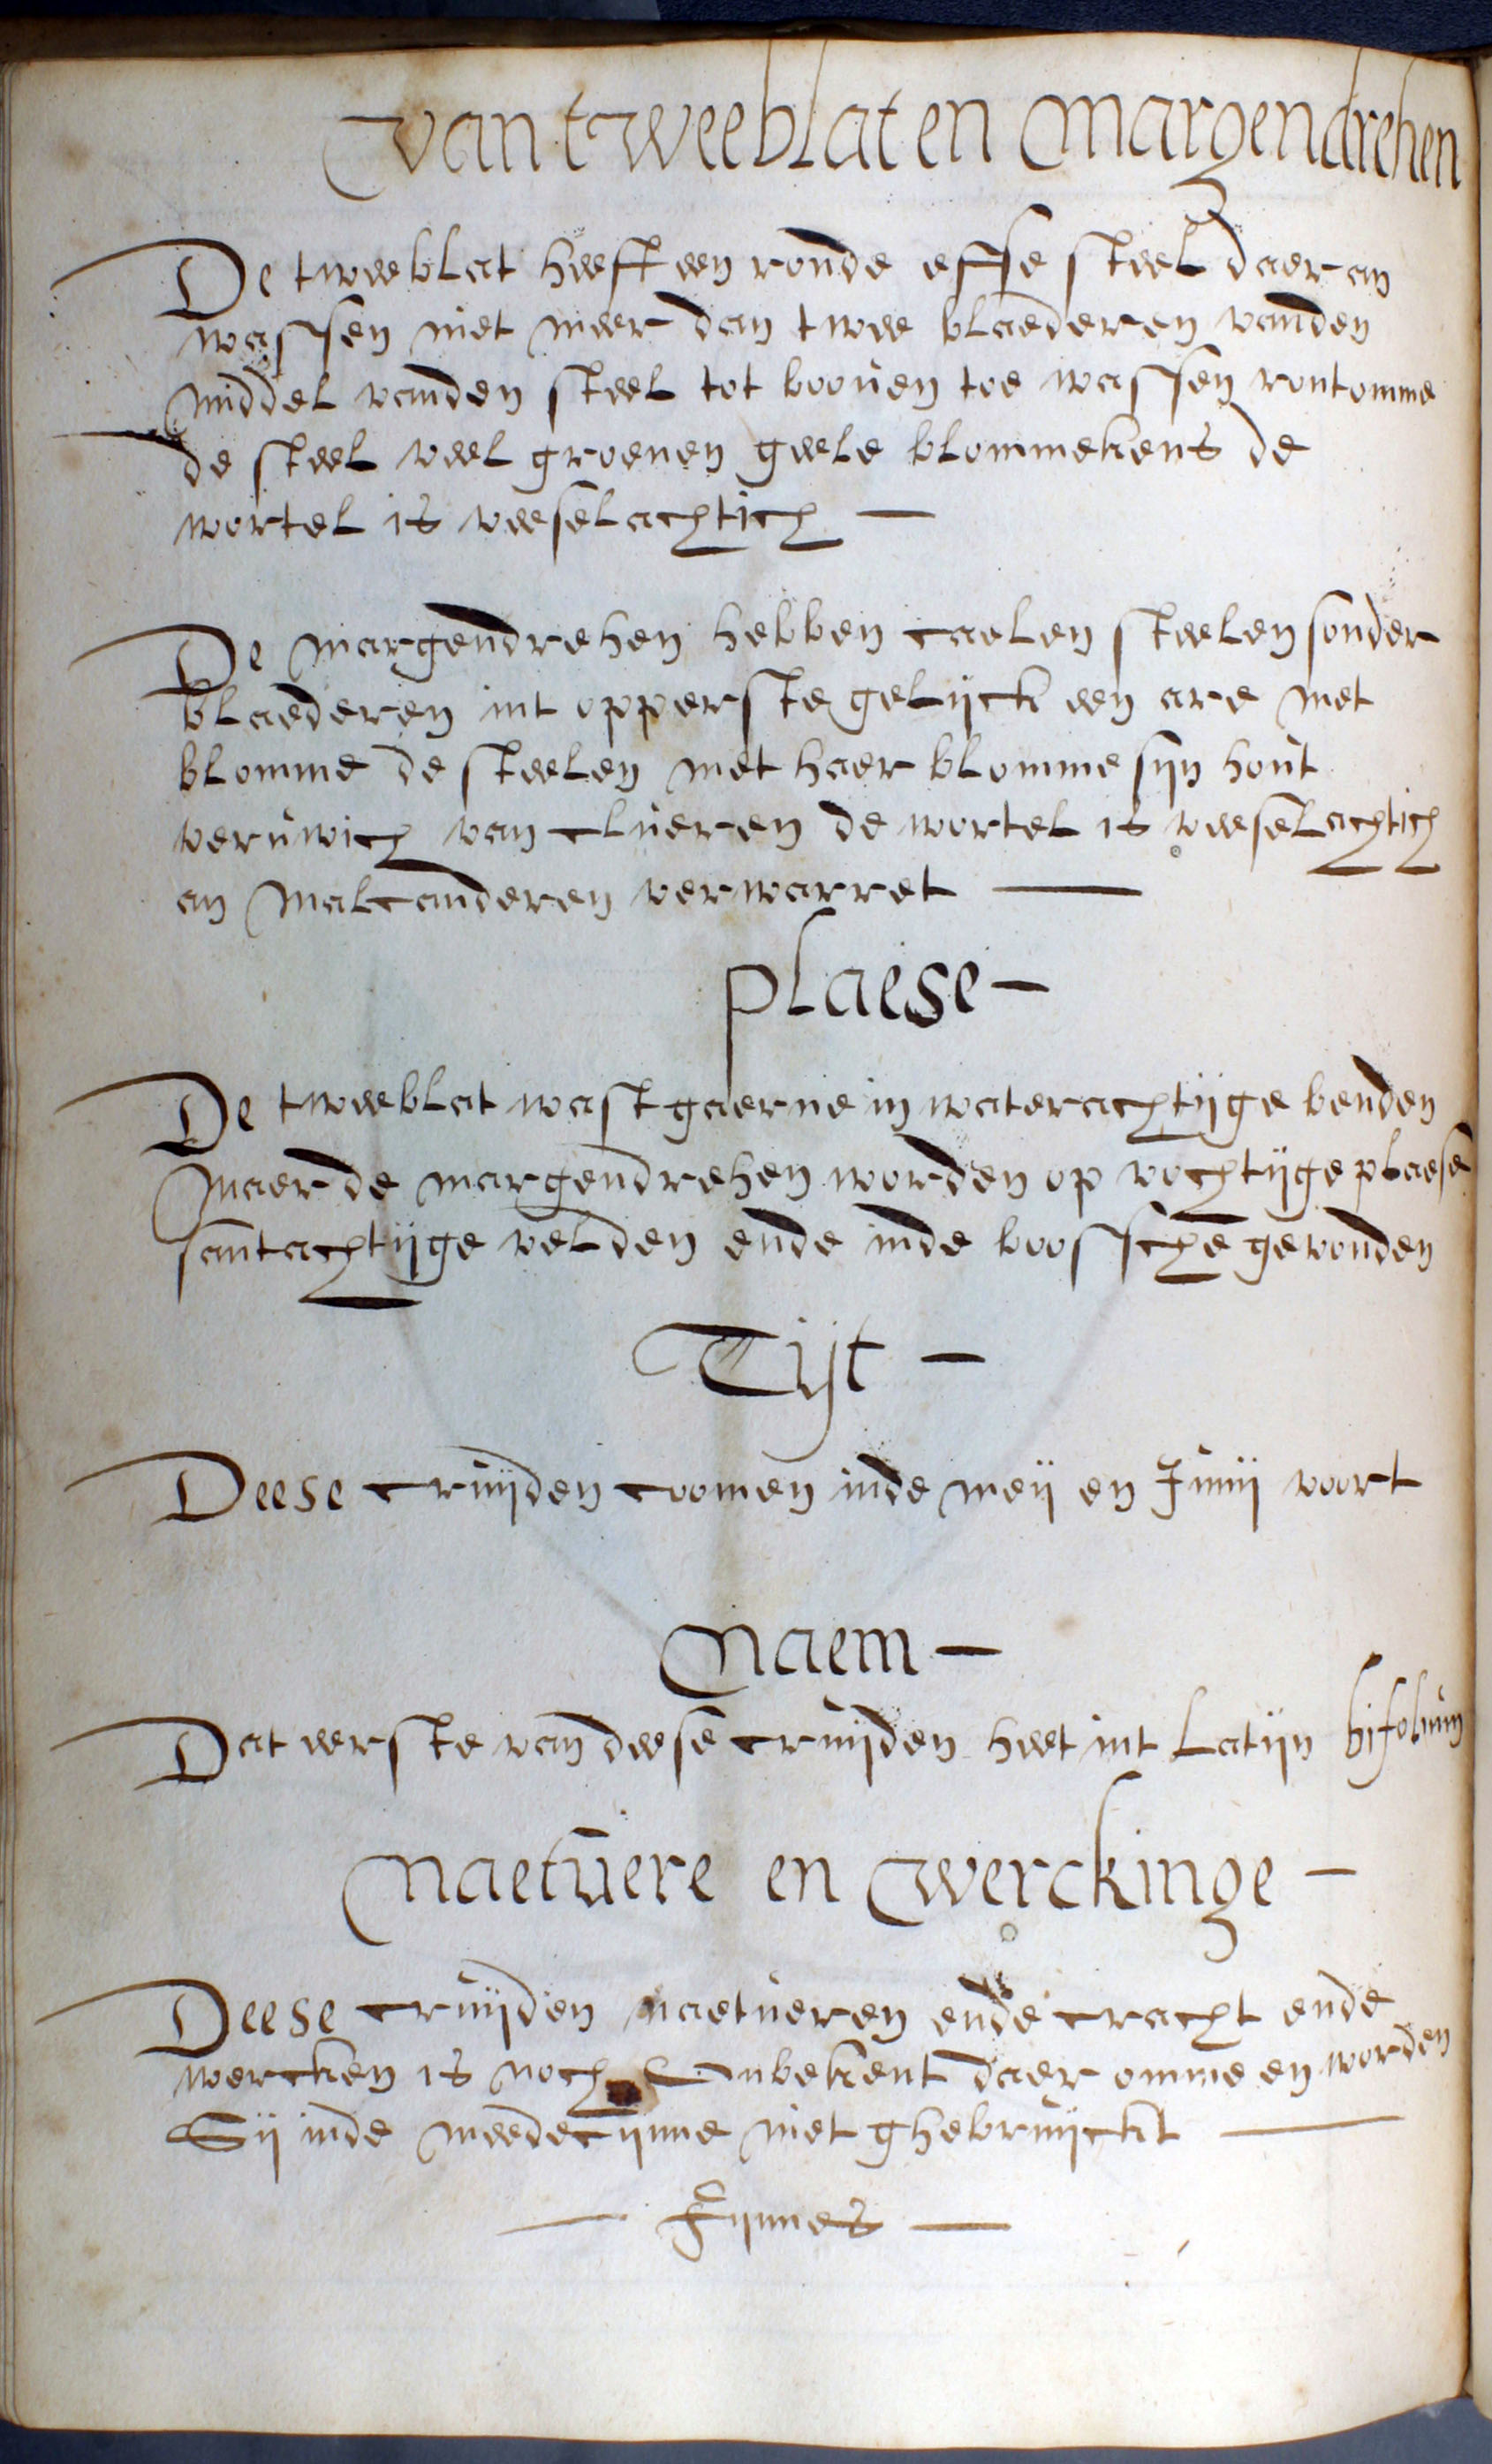 van tweeblat en margendrehen
De tweeblat heeft een ronde effe steel daer an
wassen niet meer dan twee blaederen vanden
middel vanden steel tot booven toe wassen rontomme
de steel veel groenen geele blommekens de
wortel is veeselachtich —
De margendrehen hebben caelen steelen sonder
blaederen int opperste gelijck een are met
blomme de steelen met haer blomme sijn hout
veruwich van clueren de wortel is veeselachtich
an malcanderen verwarret —
plaese —
De tweeblat wast gaerne in waterachtijge benden
maer de margendrehen worden op vochtijge plaese
santachtijge velden ende inde boossche gevonden
Tijt —
Deese cruijden coomen inde meij en Junij voort
Naem —
Dat eerste van deese cruijden heet int Latijn bifolium
Naetuere en werckinge —
Deese cruijden naetueren ende cracht ende
wercken is noch onbekent daer omme en worden
Sij inde meedecijnne niet ghebruijckt —
— Fijnnes —